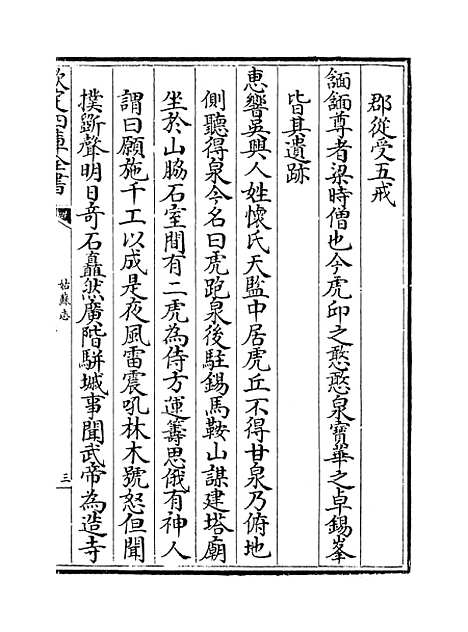 郡從受五戒
緬緬尊者梁時僧也今虎印之憨憨泉寶華之卓錫峯
皆其遺跡
惠響吳興人姓懷氏天監中居虎丘不得甘泉乃俯地
側聽得泉今名曰虎跑泉後駐錫馬鞍山謀建塔廟
坐於山脇石室間有二虎為侍方運籌思俄有神人
謂曰願施千工以成是夜風雷震吼林木號怒但聞
撲斵聲明日奇石矗然廣階駢墄事聞武帝為造寺
欽定四庫全書
姑蘇志
三